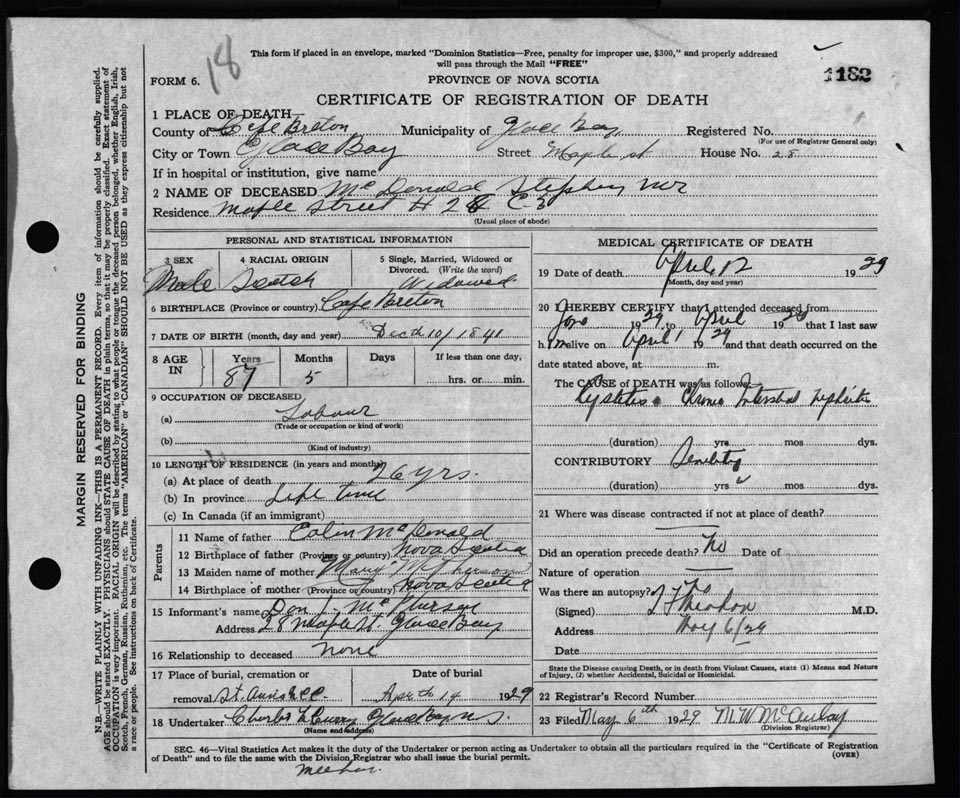 18
This form if placed in an envelope, marked "Dominion Statistics—Free, penalty for improper use, $300," and properly addressed
will pass through the Mail "FREE"
1182
FORM 6.
PROVINCE OF NOVA SCOTIA
CERTIFICATE OF REGISTRATION OF DEATH
1 PLACE OF DEATH
County of Cape Breton Municipality of Glace Bay Registered No.
(For use of Registrar General only)
City or Town Glace Bay Street Maple St House No. 28
If in hospital or institution, give name
2 NAME OF DECEASED McDonald Stephen
Residence Maple Street # 28
(Usual place of abode)
PERSONAL AND STATISTICAL INFORMATION
3 SEX 4 RACIAL ORIGIN 5 Single, Married, Widowed or Divorced. (Write the word)
Male Scotch Widowed
6 BIRTHPLACE (Province or country) Cape Breton
7 DATE OF BIRTH (month, day and year) Dec th 10/1841
8 AGE IN Years Months Days If less than one day,
87 5 hrs. or min.
9 OCCUPATION OF DECEASED
(a) Labour
(Trade or occupation or kind of work)
(b)
(Kind of industry)
10 LENGTH OF RESIDENCE (in years and months)
(a) At place of death 26 yrs.
(b) In province Life time
(c) In Canada (if an immigrant)
Parents
11 Name of father Colin McDonald
12 Birthplace of father (Province or country) Nova Scotia
13 Maiden name of mother Mary
14 Birthplace of mother (Province or country) Nova Scotia
15 Informant's name Dan J.
Address 28 Maple St. Glace Bay
16 Relationship to deceased None
17 Place of burial, cremation or removal St. Anns Date of burial Aprth 14 1929
18 Undertaker Charles Glace Bay N S.
(Name and address)
MEDICAL CERTIFICATE OF DEATH
19 Date of death April 12 1929
(Month, day and year)
20 I HEREBY CERTIFY that I attended deceased from
1929 to April 1929 that I last saw
him alive on April 1 1929 and that death occurred on the
date stated above, at m.
The CAUSE of DEATH was as follows:—
Cystitis Chronic Interstitial Nephritis
(duration) yrs mos dys.
CONTRIBUTORY Senility
(duration) yrs mos dys.
21 Where was disease contracted if not at place of death?
Did an operation precede death? No Date of
Nature of operation
Was there an autopsy? No
(Signed) M.D.
Address May 6/29
Date
State the Disease causing Death, or in death from Violent Causes, state (1) Means and Nature
of Injury, (2) whether Accidental, Suicidal or Homicidal.
22 Registrar's Record Number
23 Filed May 6th 1929 M.W. McAulay
(Division Registrar)
SEC. 46—Vital Statistics Act makes it the duty of the Undertaker or person acting as Undertaker to obtain all the particulars required in the "Certificate of Registration
of Death" and to file the same with the Division Registrar who shall issue the burial permit.
(OVER)
MARGIN RESERVED FOR BINDING
N.B.—WRITE PLAINLY WITH UNFADING INK—THIS IS A PERMANENT RECORD. Every item of information should be carefully supplied.
AGE should be stated EXACTLY. PHYSICIANS should STATE CAUSE OF DEATH in plain terms, so that it may be properly classified. Exact statement of
OCCUPATION is very important. RACIAL ORIGIN will be described by stating to what people or tongue the deceased person belonged, whether English, Irish,
Scotch, French, German, Russian, Ruthenian, etc. The terms "AMERICAN" or "CANADIAN" SHOULD NOT BE USED as they express citizenship but not
a race or people. See instructions on back of Certificate.